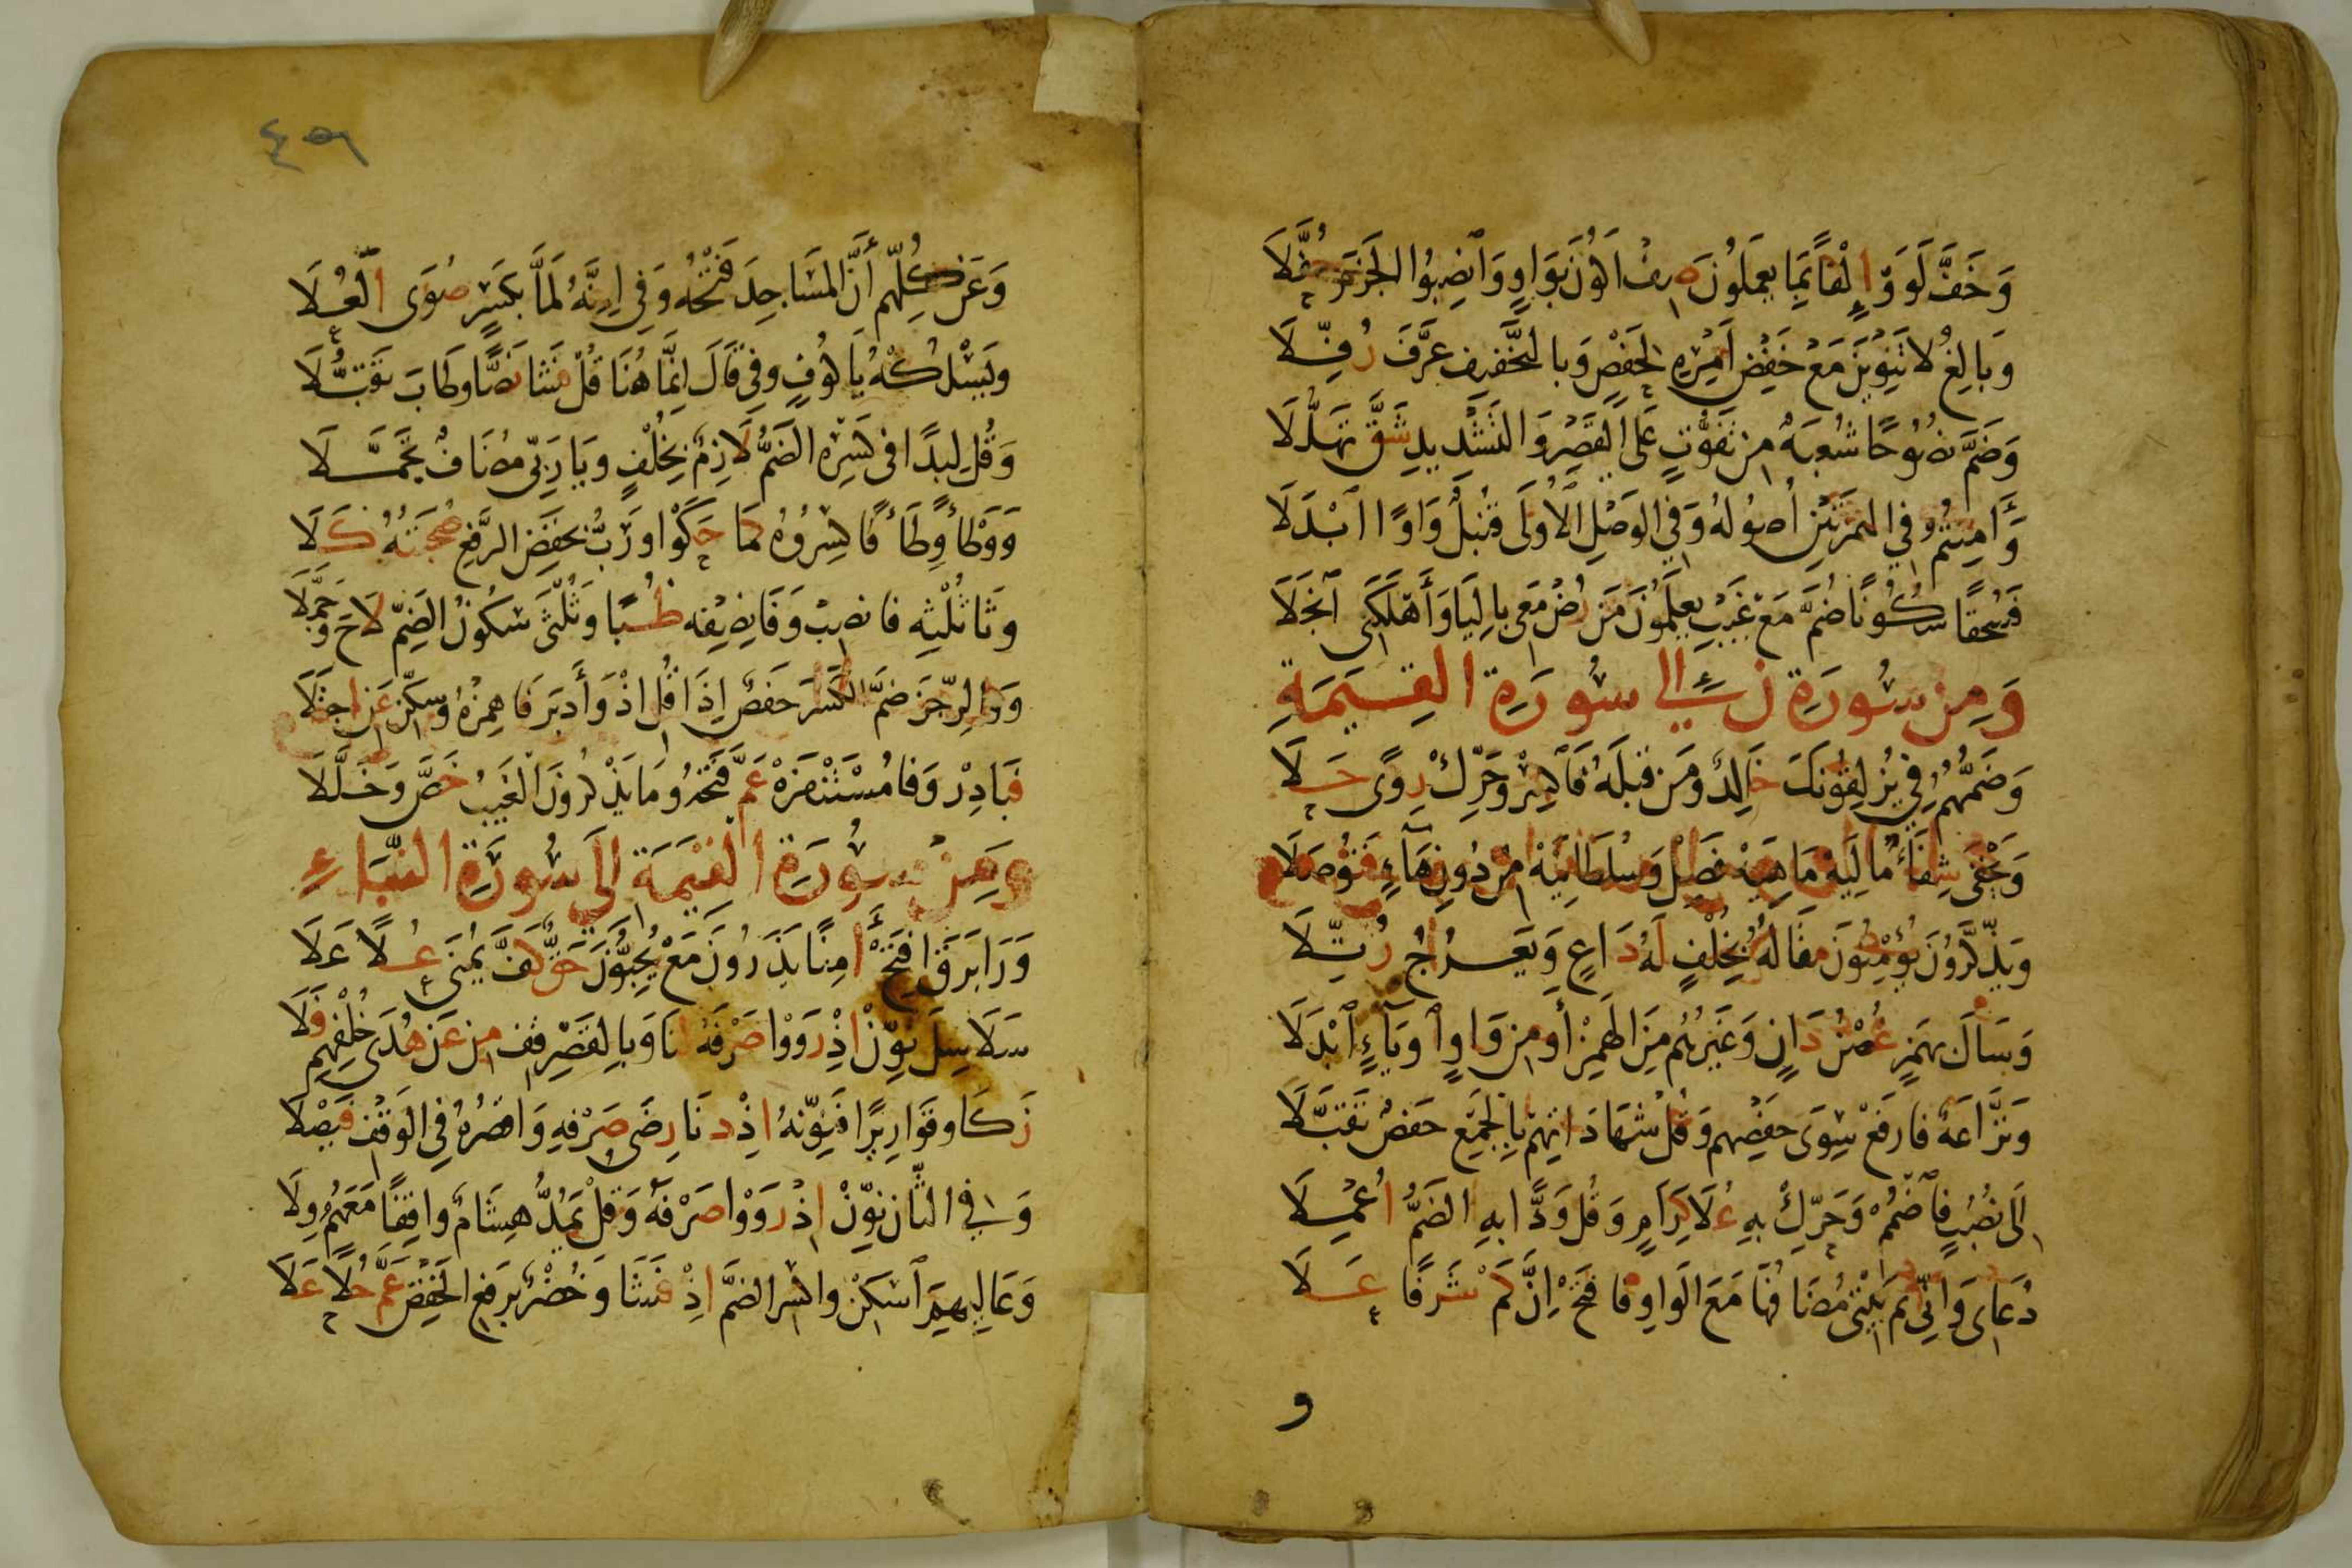 وَخَفَّ لَوَوْا إِلْفًا بِمَا يَعْمَلُونَ صِفْ أَكُونَ بِوَاوٍ وَانْصِبُوا الْجَزْمَ حُفَّلَا
وَبَالِغُ لَا تَنْوِينَ مَعْ خَفْضِ أَمْرِهِ لِحَفْصٍ وَبِالتَّخْفِيفِ عَرَّفَ رُفِّلَا
وَضَمَّ نَصُوحًا شُعْبَةٌ مِنْ تَفَوُّتٍ عَلَى الْقَصْرِ وَالتَّشْدِيدِ شَقَّ تَهَلُّلَا
وَءَامِنْتُمُ فِي الْهَمْزَتَيْنِ أُصُولُهُ وَفِي الْوَصْلِ الْأُولَى قُنْبُلٌ وَاوًا ابْدَلَا
فَسُحْقًا سُكُونًا ضُمَّ مَعْ غَيْبِ يَعْلَمُونَ مَنْ رُضْ مَعِي بِالْيَا وَأَهْلَكَنِي انْجَلَا
وَمِنْ سُورَةِ ن إِلَى سُورَةِ الْقِيَمَةِ
وَضَمُّهُمُ فِي يَزْلِقُونَكَ خَالِدٌ وَمَنْ قَبْلَهُ فَاكْسِرْ وَحَرِّكْ رِوًى حَلَا
وَيَخْفَى شِفَاءً مَالِيَهْ مَاهِيَهْ فَصِلْ وَسُلْطَانِيَهْ مِنْ دُونِ هَاءٍ فَتُوصَلَا
وَيَذَّكَّرُونَ يُؤْمِنُونَ مَقَالُهُ بِخُلْفٍ لَهُ دَاعٍ وَيَعْرُجُ رُتِّلَا
وَسَالَ بِهَمْزٍ غُصْنُ دَانٍ وَغَيْرُهُم مِنَ الْهَمْزِ أَو مِن وَاوٍ اَو يَاءٍ ابْدَلَا
وَنَزَّاعَةً فَارْفَعْ سِوَى حَفْصِهِم وَقُلْ شَهَادَاتِهِمْ بِالْجَمْعِ حَفْصٌ تَقَبَّلَا
إِلَى نُصُبٍ فَاضْمُمْ وَحَرِّكْ بِهِ عُلَا كِرَامٍ وَقُلْ وَدًّا بِهِ الضَّمُّ أُعْمِلَا
دُعَاءِى وَإِنِّي ثُمَّ بَيْتِي مُضَافُهَا مَعَ الْوَاوِ فَافْتَحْ إِنَّ كَمْ شَرَفًا عَلَا
و
٤٥٦
وَعَنْ كُلِّهِم أَنَّ الْمَسَاجِدَ فَتْحُهُ وَفِي إِنَّهُ لَمَّا بِكَسْرٍ صُوَى الْعُلَا
وَيَسْلُكْهُ يَا كُوفٍ وَفِي قَالَ إِنَّمَا هُنَا قُلْ فَشَا نَصًّا وَطَابَ تَقَبُّلَا
وَقُلْ لِبَدًا فِي كَسْرِهِ الضَّمُّ لَازِمٌ بِخُلْفٍ وَيَا رَبِّي مُضَافٌ تَجَمَّلَا
وَوَطْأً وِطَاءً فَاكْسِرُوهُ كَمَا حَكَوْا وَرَبُّ بِخَفْضِ الرَّفْعِ صُحْبَتُهُ كَلَا
وَثَا ثُلْثِهِ فَانْصِبْ وَفَا نِصْفِهِ ظُبًا وَثُلْثَيْ سُكُونُ الضَّمِّ لَاحَ وَجَمَّلَا
وَوَالرِّجْزَ ضَمَّ الْكَسْرَ حَفْصٌ إِذَا قُلِ اذْ وَأَدْبَرَ فَاهْمِزْهُ وَسَكِّنْ عَنِ اجْتِلَا
فَبَادِرْ وَفَا مُسْتَنْفِرَهْ عَمَّ فَتْحُهُ وَمَا يَذْكُرُونَ الْغَيْبُ خَصَّ وَخَلَّلَا
وَمِنْ سُورَةِ الْقِيَمَةِ إِلَى سُورَةِ النَّبَاءِ
وَرَا بَرَقَ افْتَحْ أَمِنًا يَذَرُونَ مَعْ يُحِبُّونَ حَقٌّ كَفَّ يُمْنَى عُلًا عَلَا
سَلَاسِلَ نَوِّنْ إِذْ رَوَوْا صَرْفَهُ لَنَا وَبِالْقَصْرِ قِفْ مِنْ عَنْ هُدَى خُلْفِهِمْ فَلَا
زَكَا وَقَوَارِيرًا فَنَوِّنْهُ إِذْ دَنَا رِضَى صَرْفِهِ وَاقْصُرْهُ فِي الْوَقْفِ فَيْصَلَا
وَفِي الثَّانِ نَوِّنْ إِذْ رَوَوْا صَرْفَهُ وَقُلْ يَمُدُّ هِشَامٌ وَاقِفًا مَعَهُمْ وِلَا
وَعَالِيهِمِ اسْكِنْ وَاكْسِرِ الضَّمَّ إِذْ فَشَا وَخُضْرٌ بِرَفْعِ الْخَفْضِ عَمَّ حُلًا عَلَا